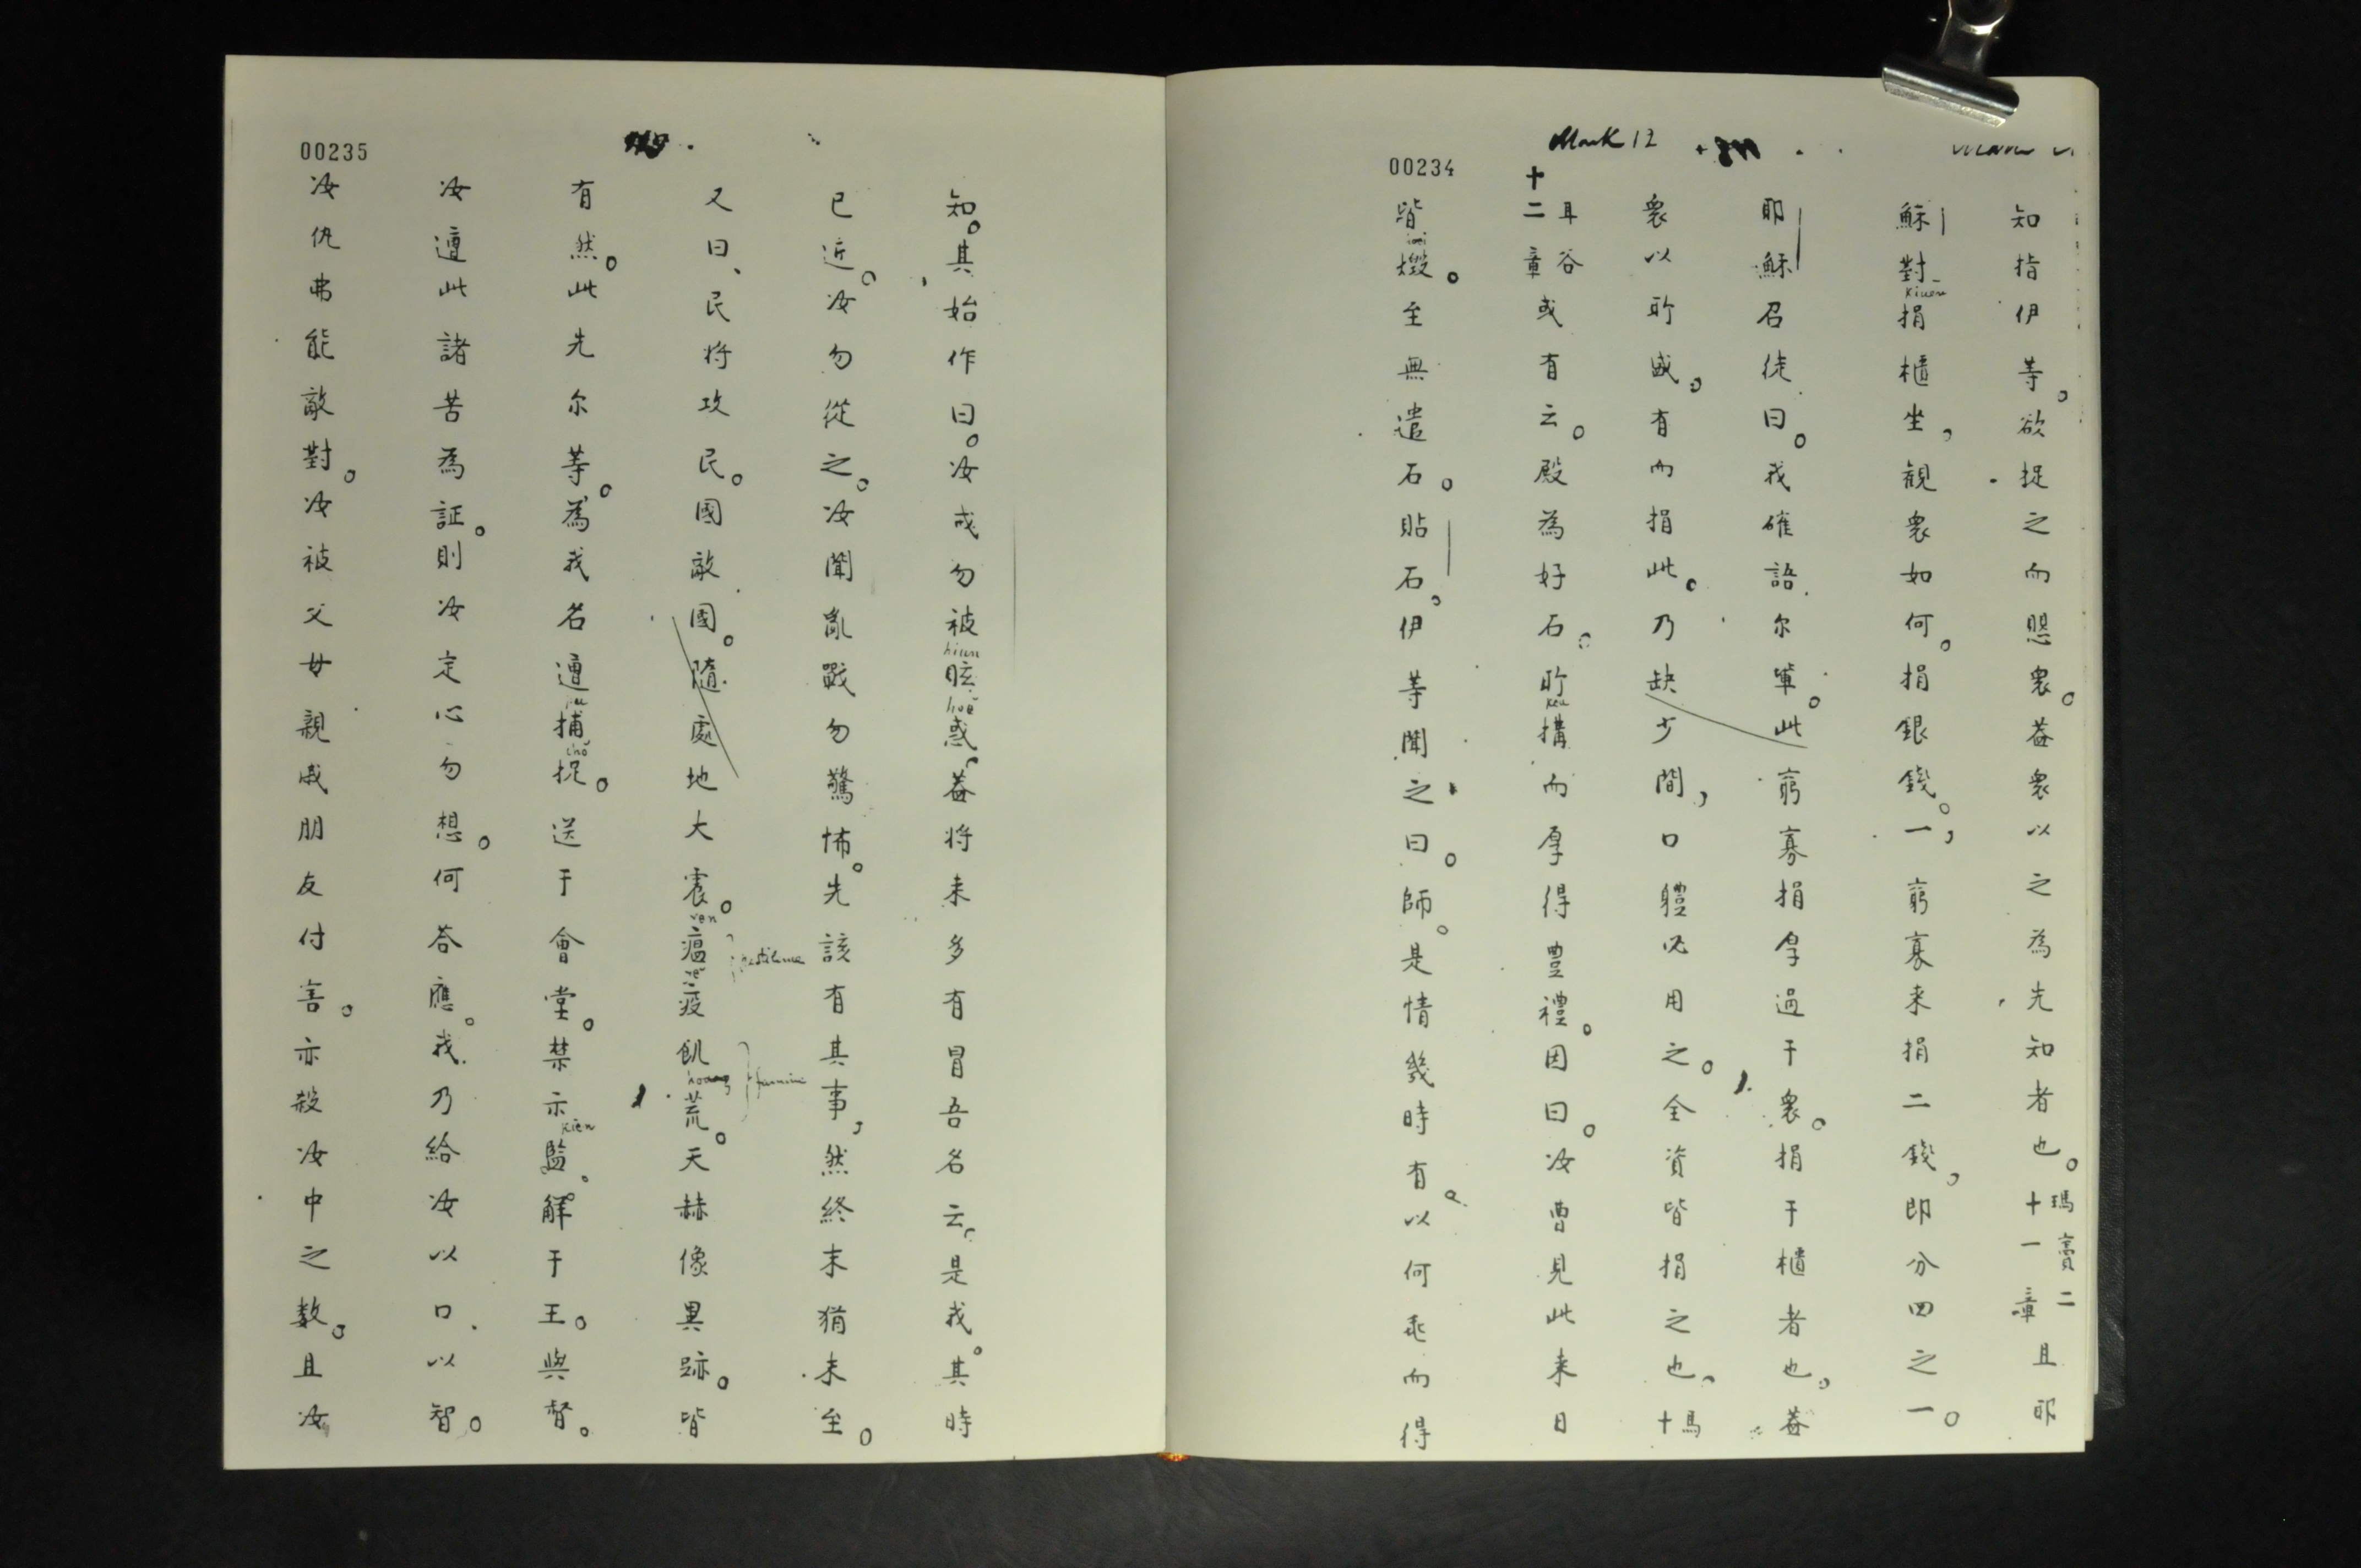 Mark 12
00234
知指伊等。欲捉之而思衆。葢衆以之為先知者也。瑪竇二十一章且耶
穌對捐櫃坐，觀衆如何。捐銀錢。一，窮寡来捐二錢，即分四之一。
kiuen
耶穌召徒曰。我確語尔軰。此窮寡捐厚過于衆。捐于櫃者也，葢
衆以所盛，有而捐此。乃缺少間，口體必用之。全資皆捐之也，馬十
耳谷十二章或有云。殿為好石。所搆而厚得豊禮。因曰。汝曹見此来日
皆燬。至無遣石。貼石，伊等聞之曰。師。是情幾時有。以何兆而得
00235
知。其始作曰。汝戒勿被眩惑，葢将来多有冒吾名云，是我。其時
hiuen
hoĕ
已近。汝勿從之。汝聞亂戰勿驚怖。先該有其事，然終末猶未至。
又曰、民将攻民。國敵國。隨處地大震。瘟疫飢荒。天赫像異跡。皆
ven
pestilence
hoang
famine
有然。此先尔等。為我名遭捕捉。送于會堂。禁示監。解于王。與督。
chŏ
kien
汝遭此諸苦為証。則汝定心勿想。何答應。我乃給汝以口以智。
汝仇弗能敵對。汝被父母親戚朋友付害。亦殺汝中之数。且汝